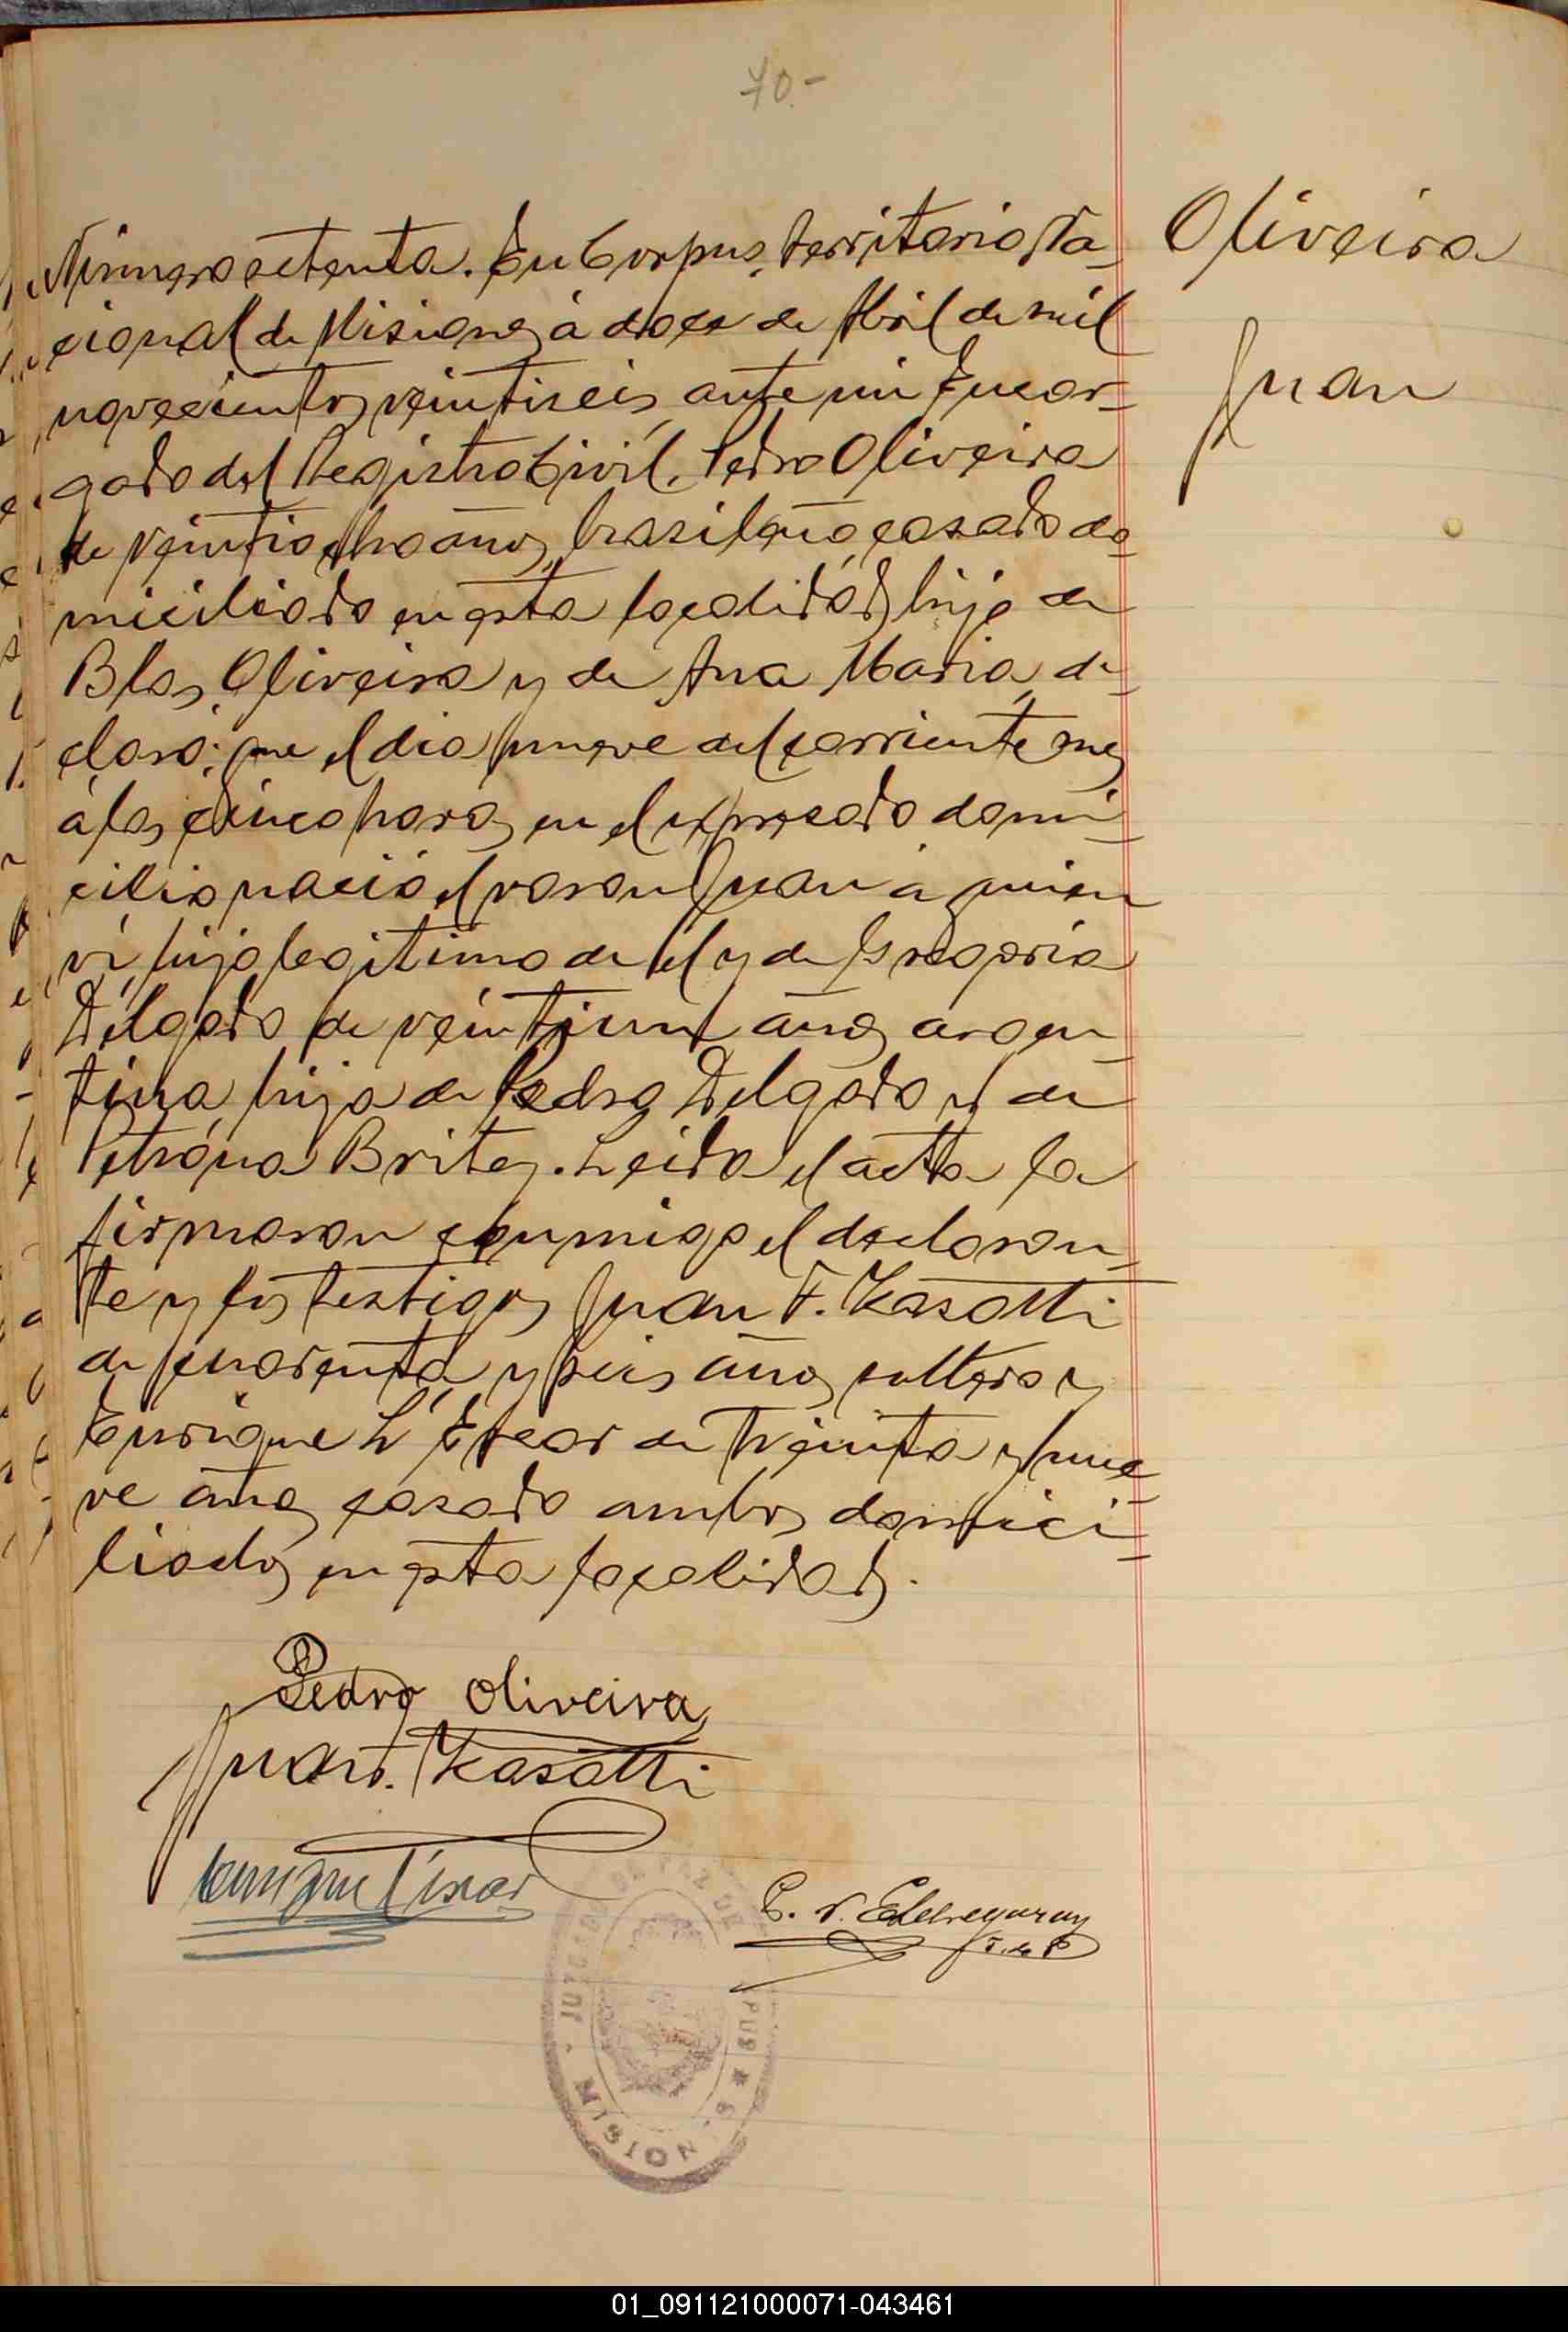 70.-
Oliveira
Juan
Número setenta. En Corpus, territorio Na-
cional de Misiones á doce de Abril de mil
novecientos veintiseis, ante mi Encar-
gado del Registro Civil, Pedro Oliveira
de veintiocho años, brasileño, casado do-
miciliado en esta localidad, hijo de
Blas Oliveira y de Ana Maria, de-
claró: que el dia nueve del corriente mes
á las cinco horas en el expresado domi-
cilio nació el varon Juan á quien
ví, hijo legitimo de él y de Gregoria
Delgado de veintiun años argen-
tina, hija de Pedro Delgado y de
Petrona Britez. Leida el acta la
firmaron conmigo el declaran-
te y los testigos Juan F. Kasatti
de cuarenta y seis años soltero y
Enrique L' de treinta y nue-
ve años casado ambos domici-
liados en esta localidad.
Pedro Oliveira
Juan F. Kasatti
Enrique
Echegaray
J. de P.
JUZGADO DE PAZ DE CORPUS * MISIONES
01_091121000071-043461